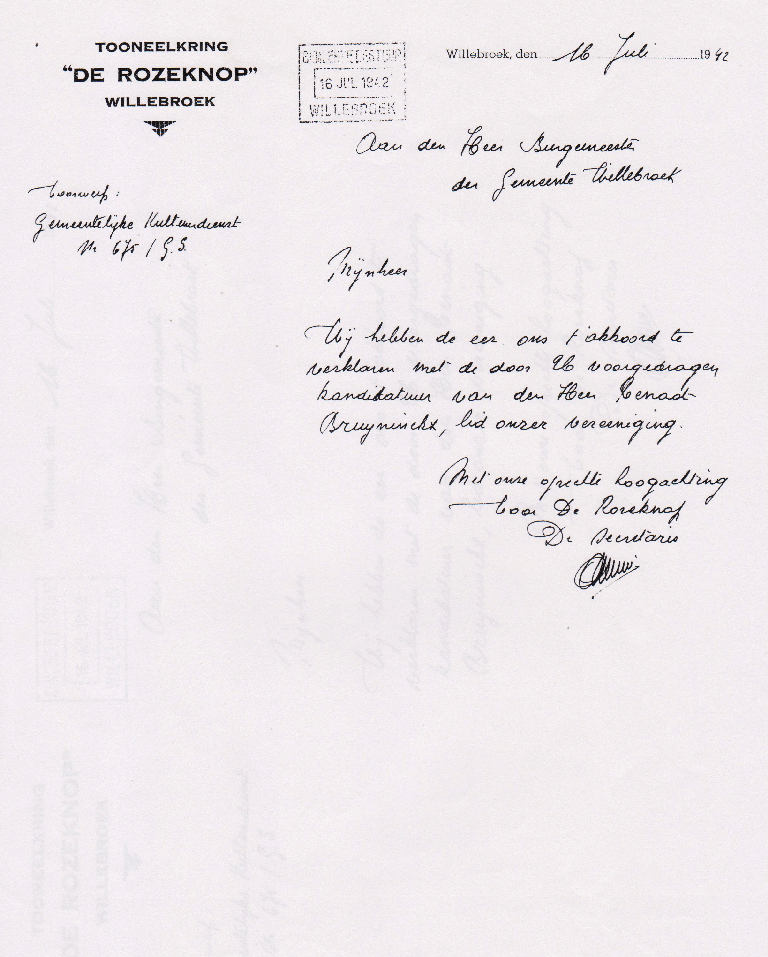 TOONEELKRING
"DE ROZEKNOP"
WILLEBROEK
16 JUL 1942
WILLEBROEK
Willebroek, den 16 Juli 1942
Aan den Heer Burgemeester
der Gemeente Willebroek
Voorwerp :
Gemeentelijke Kultuurdienst
Nr 675 / G.S.
Mijnheer
Wij hebben de eer ons t'akkoord te
verklaren met de door U voorgedragen
kandidatuur van den Heer
Bruyninckx, lid onzer vereeniging.
Met onze oprechte hoogachting
Voor De Rozeknop
De secretaris